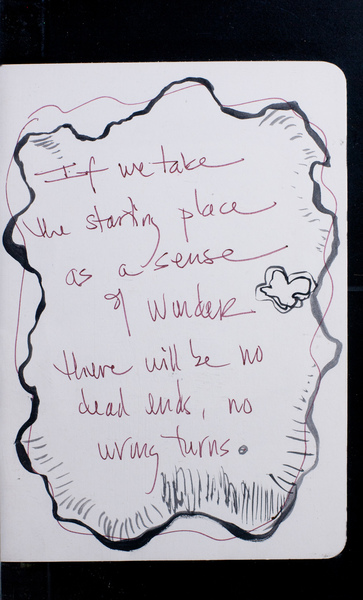 If we take
the starting place
as a sense
of wonder
there will be no
dead ends, no
wrong turns.